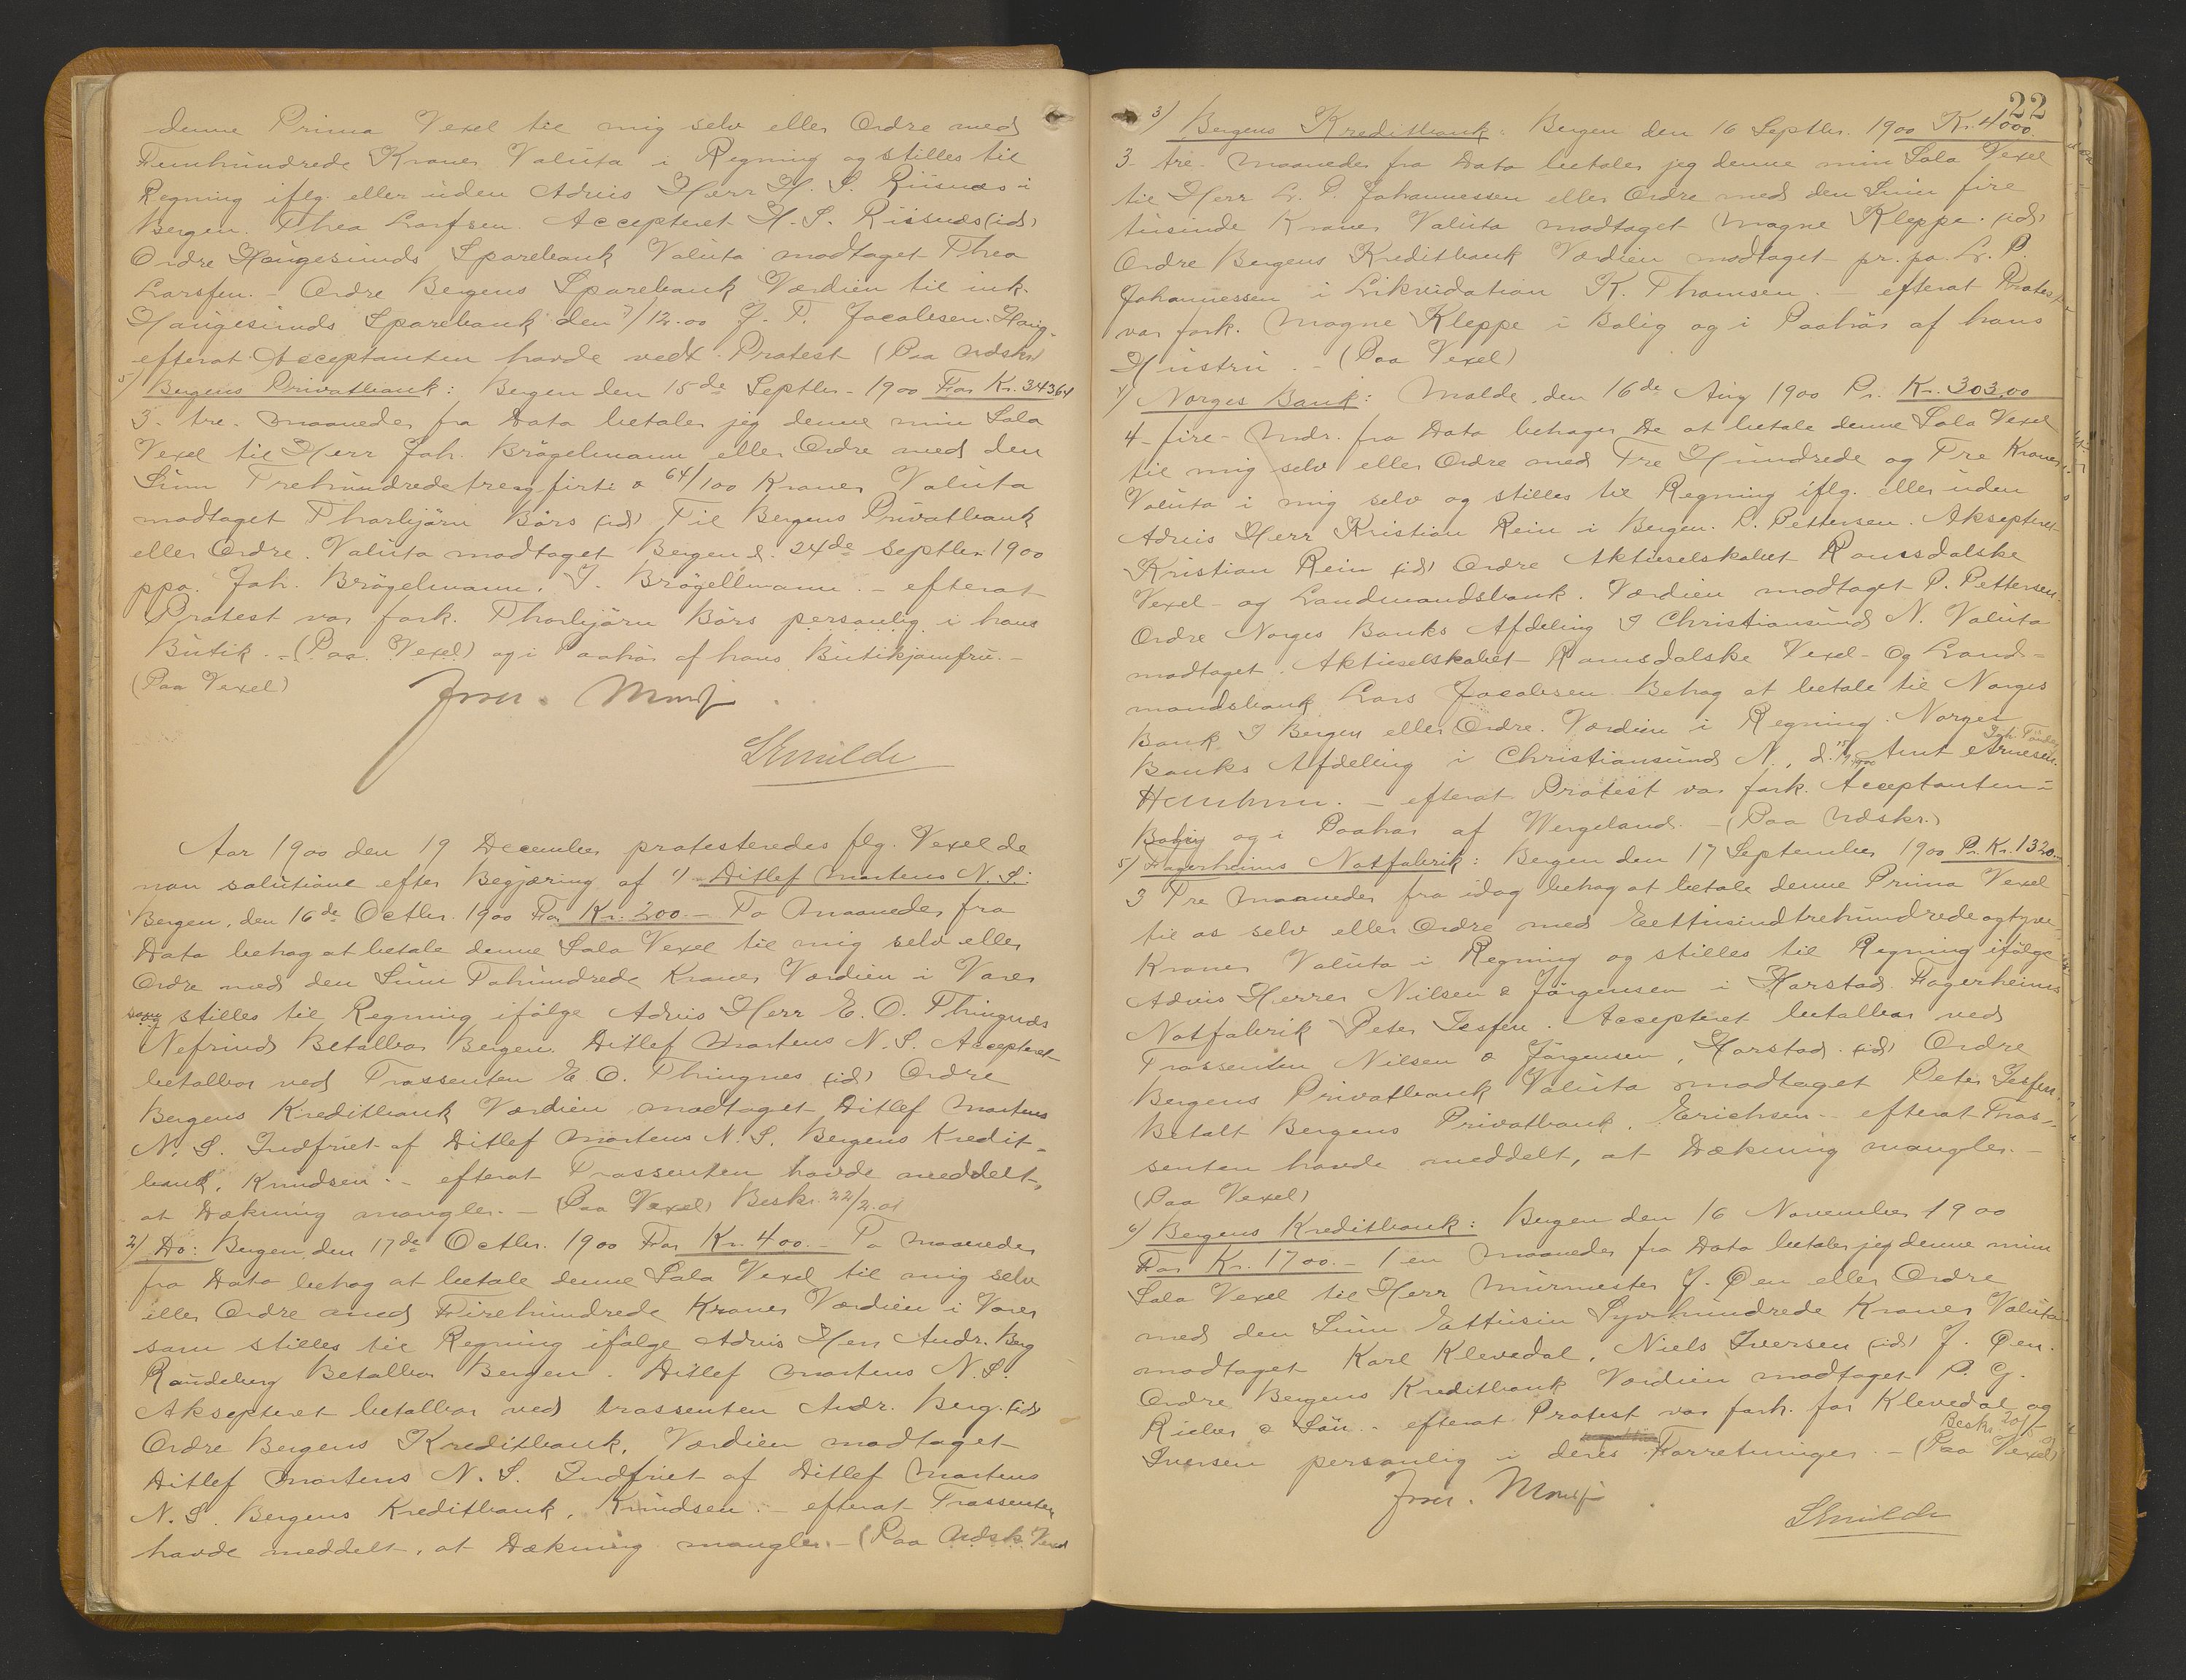 denne Prima Vexel til mig selv eller Ordre med
Femhundrede Kroner Valuta i Regning og stilles til
Regning iflg. eller uden Advis Herr H. S. Riisnæs i
Bergen. Thea Larsen. Accepteret H. S. Riisnæs (id)
Ordre Haugesunds Sparebank Valuta modtaget Thea
Larsen. - Ordre Bergens Sparebank Værdien til ink.
Haugesunds Sparebank den 7/12.00 J. T. Jacobsen. Haug.
efterat Acceptanten havde vedt. Protest (Paa Udskr)
5) Bergens Privatbank: Bergen den 15de Septbr. 1900 For Kr. 34364
3 - tre - Maaneder fra Dato betaler jeg denne min Sola
Vexel til Herr Joh. Brögelmann eller Ordre med den
Sum Trehundredetreogfirti & 64/100 Kroner Valuta
modtaget Thorbjörn Börs (id) Til Bergens Privatbank
eller Ordre. Valuta modtaget Bergen d. 24de Septbr. 1900
ppa. Joh. Brögelmann. J. Brögellmann. - efterat
Protest var fork. Thorbjörn Börs personlig i hans
Butik. - (Paa Vexel) og i Paahör af hans Butikjomfru. -
(Paa Vexel)
Aar 1900 den 19 December protesteredes flg. Vexel de
non solutione efter Begjæring af 1) Ditlef Martens N. S.:
Bergen, den 16de Octbr. 1900 For Kr. 200. - To Maaneder fra
Dato behag at betale denne Sola Vexel til mig selv eller
Ordre med den Sum Tohundrede Kroner Værdien i Varer
som stilles til Regning ifölge Advis Herr E. O. Thingnæs
Nefrind Betalbar Bergen. Ditlef Martens N. S. Accepteret
betalbar ved Trassenten E. O. Thingnes (id) Ordre
Bergens Kreditbank Værdien modtaget Ditlef Martens
N. S. Indfriet af Ditlef Martens N. S. Bergens Kredit-
bank, Knudsen. - efterat Trassenten havde meddelt,
at Dækning mangler. - (Paa Vexel) Beskr. 22/2.01
2) Do: Bergen, den 17de Octbr. 1900 For Kr. 400. - To Maaneder
fra Dato behag at betale denne Sola Vexel til mig selv
eller Ordre med Firehundrede Kroner Værdien i Varer
som stilles til Regning ifölge Advis Herr Andr. Berg
Raudeberg Betalbar Bergen. Ditlef Martens N. S.
Aksepteret betalbar ved trassenten Andr. Berg. (id)
Ordre Bergens Kreditbank, Værdien modtaget
Ditlef Martens N. S. Indfriet af Ditlef Martens
N. S. Bergens Kreditbank, Knudsen. - efterat Trassenten
havde meddelt, at Dækning mangler. - (Paa Udsk. Vexel
22
3) Bergens Kreditbank: Bergen den 16 Septbr. 1900 Kr. 4000.
3 - tre - Maaneder fra Dato betaler jeg denne min Sola Vexel
til Herr L. P. Johannessen eller Ordre med den Sum fire
tusinde Kroner Valuta modtaget Magne Kleppe. (id)
Ordre Bergens Kreditbank Værdien modtaget pr. pa. L. P.
Johannessen i Likvidation K. Thomsen. - efterat Protest
var fork. Magne Kleppe i Bolig og i Paahör af hans
Hustru. - (Paa Vexel)
4) Norges Bank: Molde, den 16de Aug 1900 Pr. Kr. 303,00
4 - fire - Mdr. fra Dato behager De at betale denne Sola Vexel
til mig selv eller Ordre med Tre Hundrede og Tre Kroner
Valuta i mig selv og stilles til Regning iflg. eller uden
Advis Herr Kristian Rein i Bergen. P. Pettersen. Aksepteret
Kristian Rein (id) Ordre Aktieselskabet Romsdalske
Vexel- og Landmandsbank. Værdien modtaget P. Pettersen.
Ordre Norges Banks Afdeling I Christiansund N. Valuta
modtaget. Aktieselskabet Romsdalske Vexel- Og Land-
mandsbank Lars Jacobsen. Behag at betale til Norges
Bank I Bergen eller Ordre. Værdien i Regning. Norges
Banks Afdeling i Christiansund N., d. Amt Arnesen.
- efterat Protest var fork. Acceptanten i
Bolig og i Paahör af Wergeland. - (Paa Udskr.)
5) Fagerheims Notfabrik: Bergen den 17 September 1900 Pr. Kr. 1320. -
3 Tre Maaneder fra idag behag at betale denne Prima Vexel
til os selv eller Ordre med Eettusindtrehundredeogtyve
Kroner Valuta i Regning og stilles til Regning ifölge
Advis Herrer Nilsen & Jörgensen i Harstad. Fagerheims
Notfabrik Peter Jesfen. Accepteret betalbar ved
Trassenten Nilsen & Jörgensen, Harstad. (id) Ordre
Bergens Privatbank Valuta modtaget Peter Jesfen.
Betalt Bergens Privatbank. Erichsen. - efterat Tras-
senten havde meddelt, at Dækning mangler. -
(Paa Vexel)
6) Bergens Kreditbank: Bergen den 16 November 1900
For Kr. 1700. - 1 en Maaneder fra Dato betaler jeg denne min
Sola Vexel til Herr Murmester J. Øen eller Ordre
med den Sum Ettusin Syvhundrede Kroner Valuta
modtaget Karl Klevedal, Niels Iversen (id) J. Øen.
Ordre Bergens Kreditbank Værdien modtaget P. G.
Rieber & Sön. - efterat Protest var fork. for Klevedal og
Iversen personlig i deres Forretninger. - (Paa Vexel)